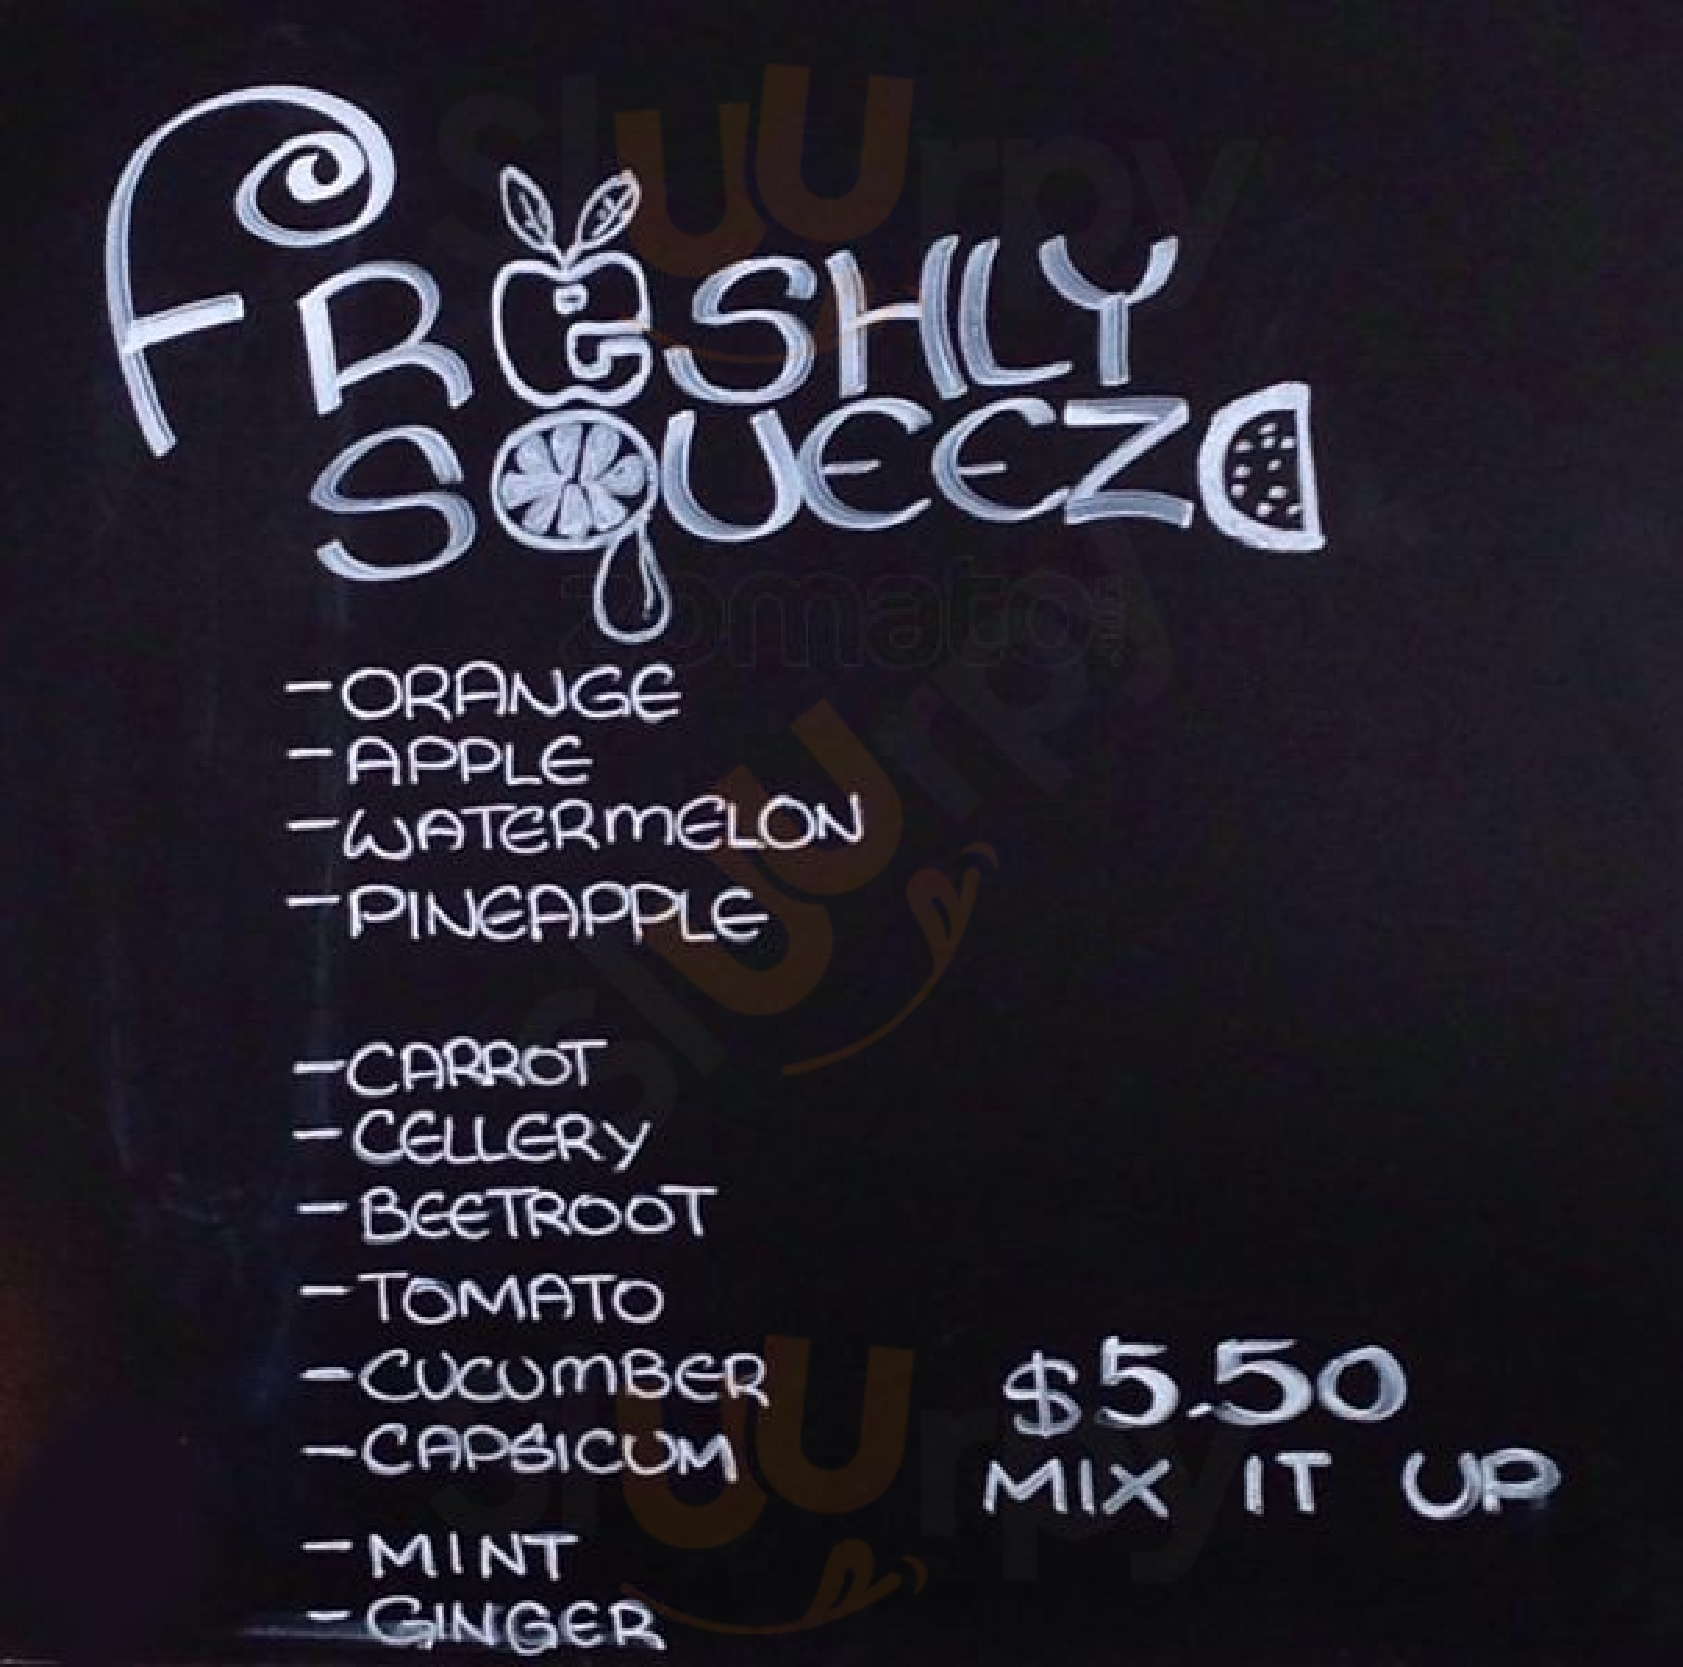 sluurpy
FRESHLY
SQUEEZD
zomato
-ORANGE
-APPLE
-WATERMELON
-PINEAPPLE
sluurpy
-CARROT
-CELLERY
-BEETROOT
-TOMATO
-CUCUMBER
-CAPSICUM
-MINT
-GINGER
$5.50
MIX IT UP
sluurpy